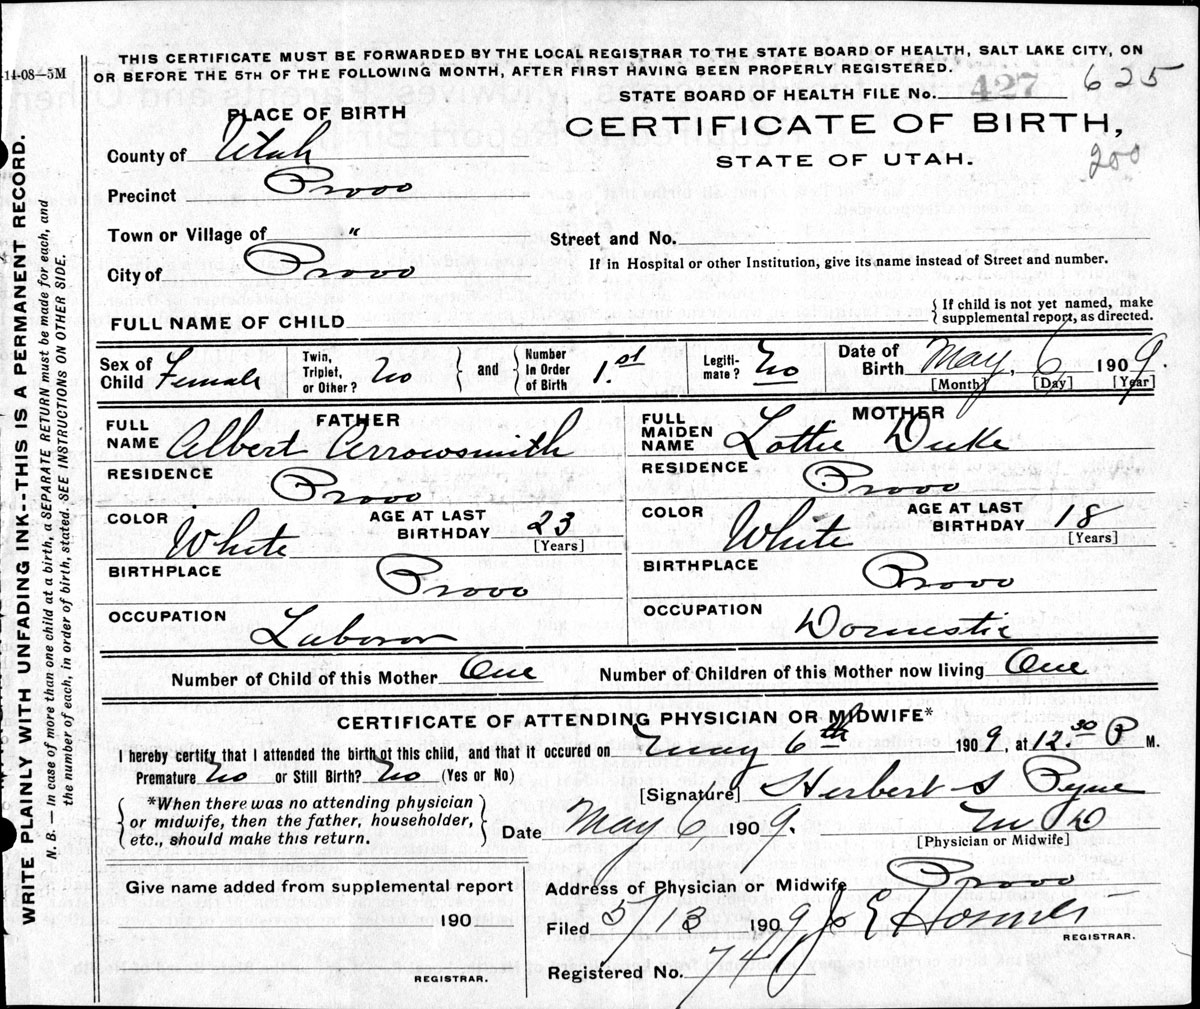 THIS CERTIFICATE MUST BE FORWARDED BY THE LOCAL REGISTRAR TO THE STATE BOARD OF HEALTH, SALT LAKE CITY, ON
-14-08—5M OR BEFORE THE 5TH OF THE FOLLOWING MONTH, AFTER FIRST HAVING BEEN PROPERLY REGISTERED.
STATE BOARD OF HEALTH FILE No. 427 625
PLACE OF BIRTH
CERTIFICATE OF BIRTH,
200
County of Utah
STATE OF UTAH.
Precinct Provo
Town or Village of "
Street and No.
City of Provo
If in Hospital or other Institution, give its name instead of Street and number.
FULL NAME OF CHILD
{ If child is not yet named, make
supplemental report, as directed.
Sex of Child Female
Twin, Triplet, or Other? No
} and {
Number In Order of Birth 1.st
Legiti- mate? No
Date of Birth May, 6, 1909.
[Month] [Day] [Year]
FATHER
FULL NAME Albert Arrowsmith
RESIDENCE Provo
COLOR White
AGE AT LAST BIRTHDAY 23
[Years]
BIRTHPLACE Provo
OCCUPATION Laboror
MOTHER
FULL MAIDEN NAME Lottie Duke
RESIDENCE Provo
COLOR White
AGE AT LAST BIRTHDAY 18
[Years]
BIRTHPLACE Provo
OCCUPATION Domestic
Number of Child of this Mother One
Number of Children of this Mother now living One
CERTIFICATE OF ATTENDING PHYSICIAN OR MIDWIFE*
I hereby certify that I attended the birth of this child, and that it occured on May 6th 1909, at 12.30 P M.
Premature No or Still Birth? No (Yes or No)
[Signature] Herbert S Pyne
{ *When there was no attending physician
or midwife, then the father, householder,
etc., should make this return. }
Date May 6 1909.
M D
[Physician or Midwife]
Give name added from supplemental report
190
REGISTRAR.
Address of Physician or Midwife Provo
Filed 5/13 1909
REGISTRAR.
Registered No. 749
WRITE PLAINLY WITH UNFADING INK--THIS IS A PERMANENT RECORD.
N. B. — In case of more than one child at a birth, a SEPARATE RETURN must be made for each, and
the number of each, in order of birth, stated. SEE INSTRUCTIONS ON OTHER SIDE.